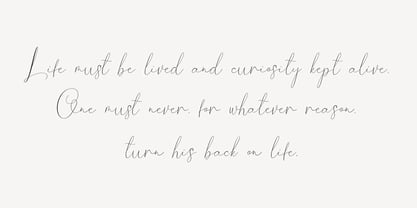 Life must be lived and curiosity kept alive.
One must never, for whatever reason,
turn his back on life.